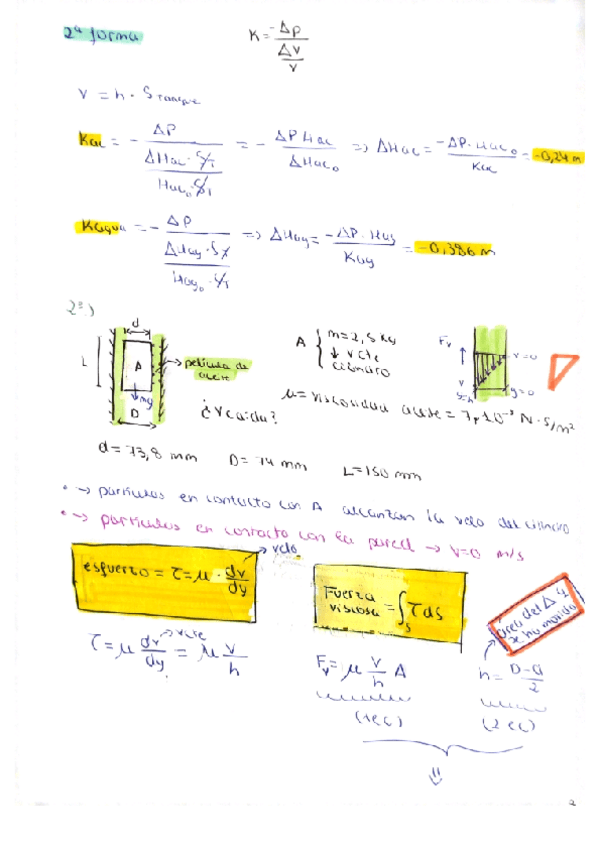 2ª forma
K = -Δp / (Δv / v)
V = h · S tanque
Kac = - ΔP / (ΔHac · S/T / Hac₀ · S/T) = - ΔP Hac / ΔHac₀ => ΔHac = -ΔP · Hac₀ / Kac = -0,24 m
Kagua = - ΔP / (ΔHag · S/T / Hag₀ · S/T) => ΔHag = -ΔP · Hag / Kag = -0,386 m
2º)
d
L
A
mg
D
película de aceite
¿Vcaída?
A { m = 2,5 kg
↓ v cte
cilindro
Fv
v=0
v
y=h
y=0
μ = viscosidad aceite = 7·10⁻³ N·S/m²
d = 73,8 mm D = 74 mm L = 150 mm
• → partículas en contacto con A alcanzan la velo del cilindro
• → partículas en contacto con la pared → v=0 m/s
esfuerzo = τ = μ · dv/dy
→ velo
Fuerza viscosa = ∫s τ ds
área del Δ q se ha movido
τ = μ dv/dy = μ v/h
→ v cte
Fv = μ v/h A
h = D-d / 2
(1 ec)
(2 ec)
2